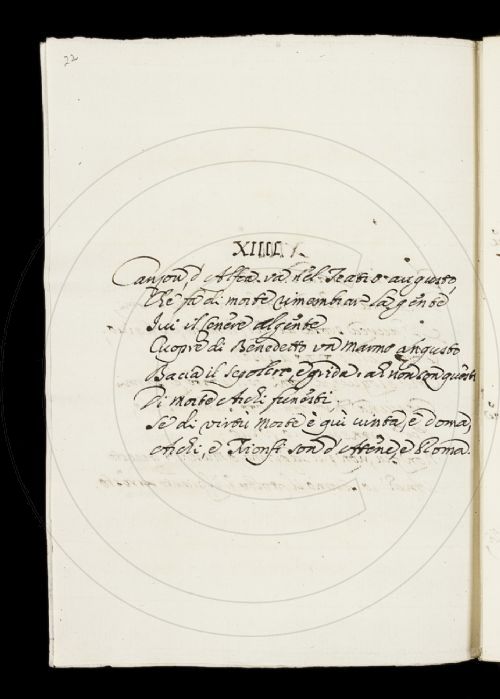 22
XIIII
Canzon, d'Assa va nel Teatro augusto,
Che fa di morte rimembrar la gente
Ivi il cenere algente
Cuopre di Benedetto un marmo angusto
Bacia il sepolcro, e grida, ah non son questi
Di morte Archi funesti.
Se di virtù Morte è qui vinta, e doma,
Archi, e Trionfi son d'Attene, e Roma.